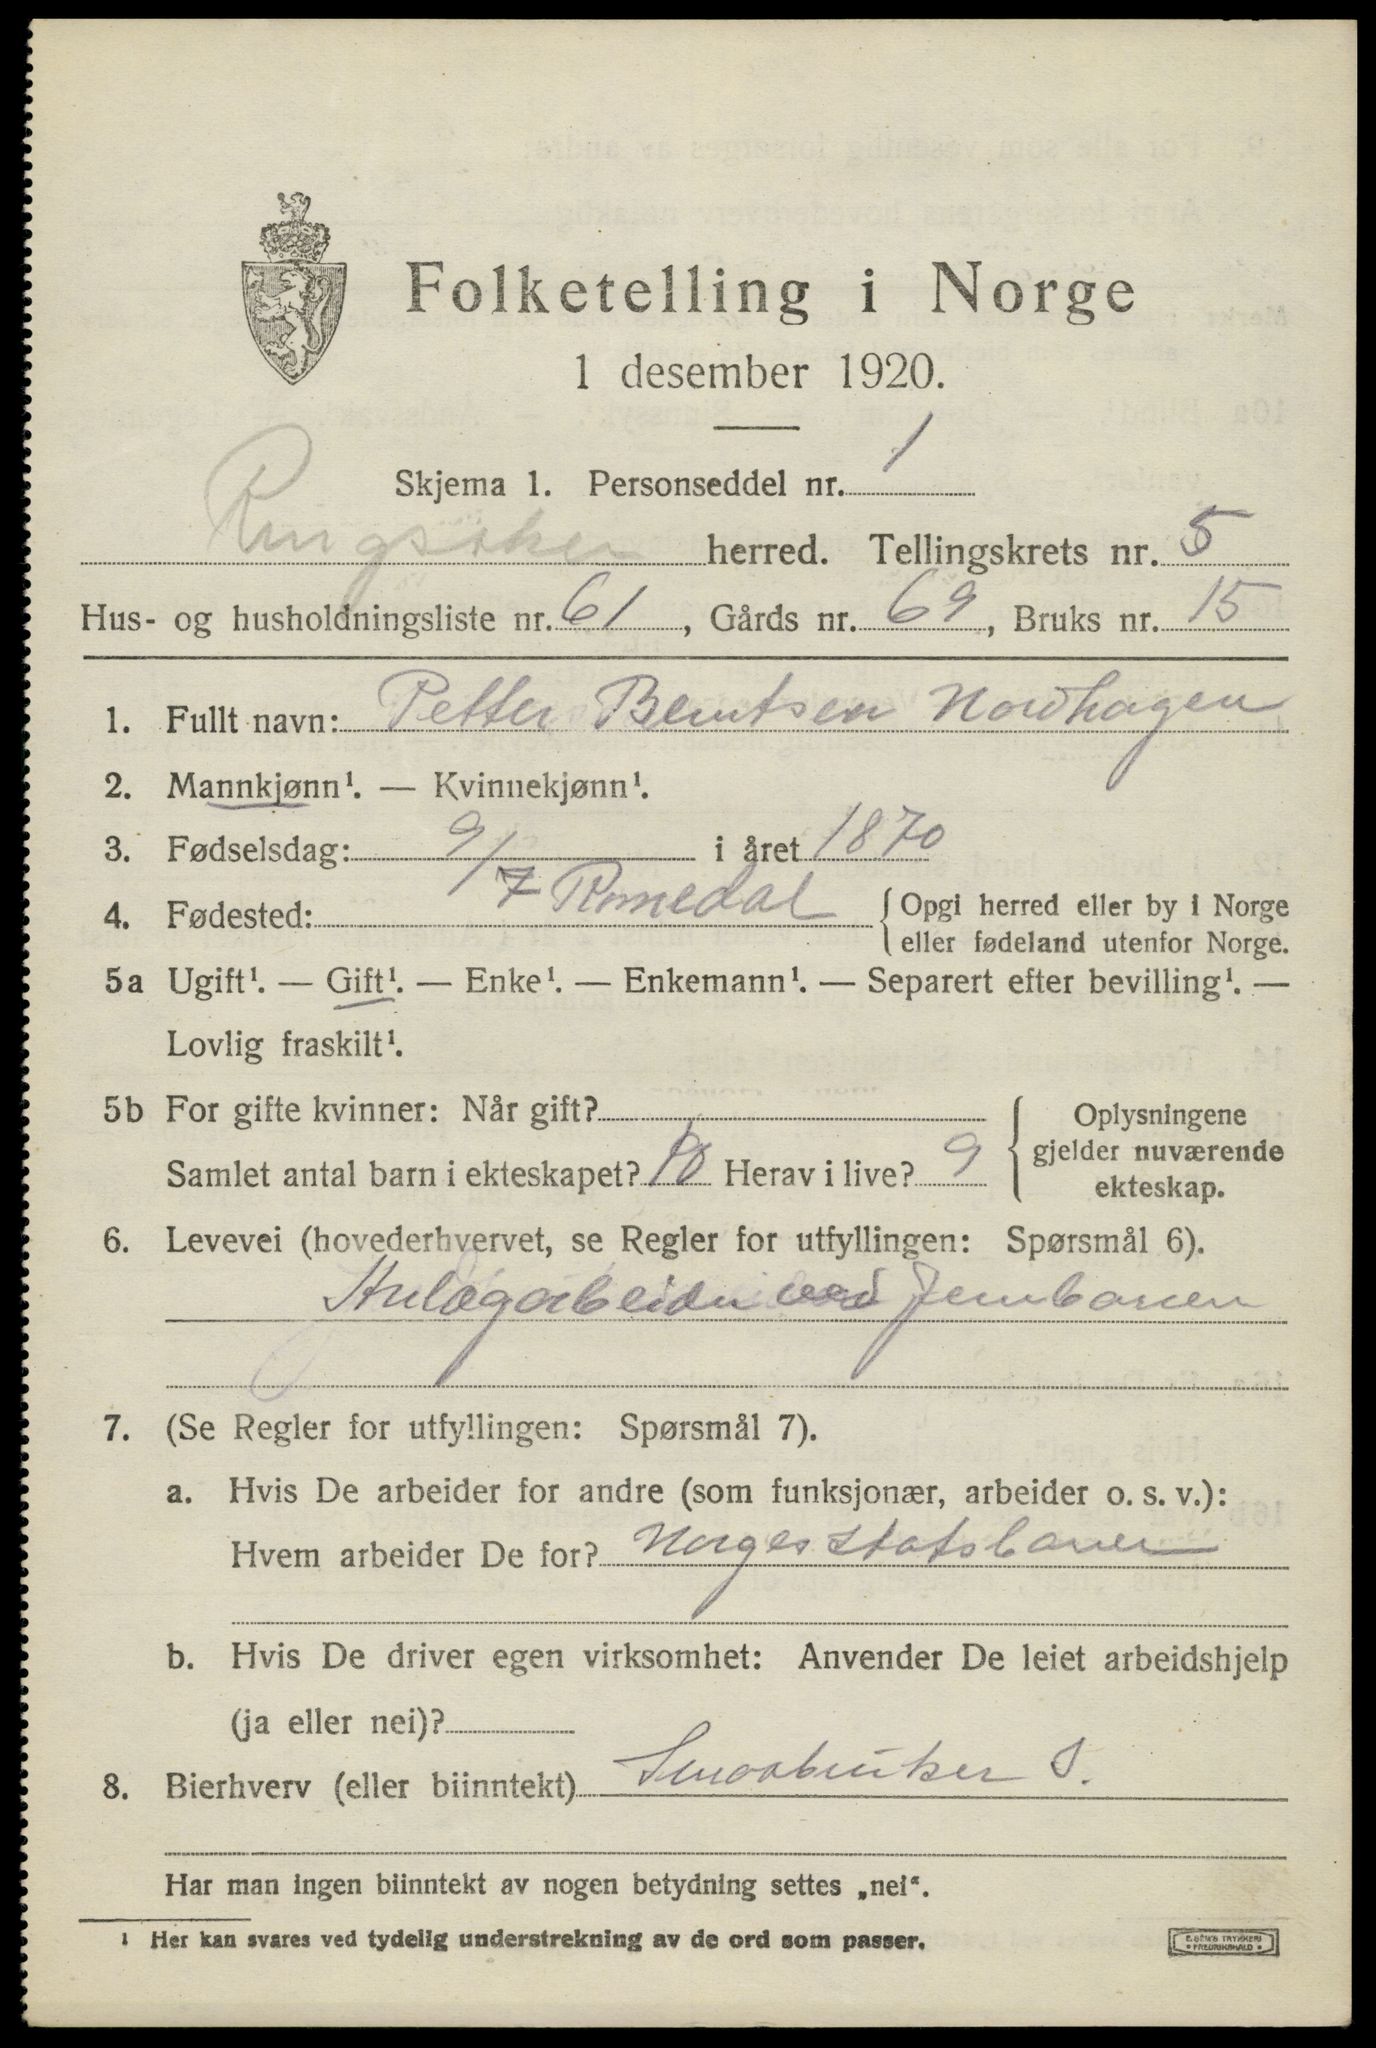 Folketelling i Norge
1 desember 1920.
Skjema 1. Personseddel nr. 1
Ringsaker herred. Tellingskrets nr. 5
Hus- og husholdningsliste nr. 61, Gårds nr. 69, Bruks nr. 15
1. Fullt navn: Petter Berntsen Nordhagen
2. Mannkjønn¹. — Kvinnekjønn¹.
3. Fødselsdag: 9/7 i året 1870
4. Fødested: Romedal { Opgi herred eller by i Norge
eller fødeland utenfor Norge.
5a Ugift¹. — Gift¹. — Enke¹. — Enkemann¹. — Separert efter bevilling¹. —
Lovlig fraskilt¹.
5b For gifte kvinner: Når gift?
Samlet antal barn i ekteskapet? 10 Herav i live? 9
Oplysningene
gjelder nuværende
ekteskap.
6. Levevei (hovederhvervet, se Regler for utfyllingen: Spørsmål 6).
Anlægarbeider ved Jernbanen
7. (Se Regler for utfyllingen: Spørsmål 7).
a. Hvis De arbeider for andre (som funksjonær, arbeider o. s. v.):
Hvem arbeider De for? Norges Statsbaner
b. Hvis De driver egen virksomhet: Anvender De leiet arbeidshjelp
(ja eller nei)?
8. Bierhverv (eller biinntekt) Smaabruker S.
Har man ingen biinntekt av nogen betydning settes „nei“.
¹ Her kan svares ved tydelig understrekning av de ord som passer.
E. SEM'S TRYKKERI
• FREDRIKSHALD •